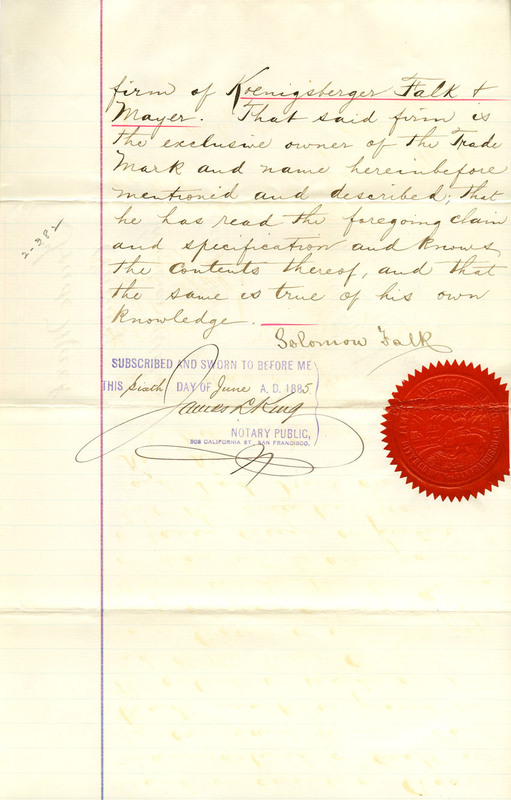 firm of Koenigsberger Falk &
Mayer. That said firm is
the exclusive owner of the Trade
Mark and name hereinbefore
mentioned and described; that
he has read the foregoing claim
and specification and knows
the contents thereof, and that
the same is true of his own
knowledge.
Solomon Falk
SUBSCRIBED AND SWORN TO BEFORE ME
THIS Sixth DAY OF June A. D. 1885
James L. King
NOTARY PUBLIC,
303 CALIFORNIA ST. SAN FRANCISCO.
2-382